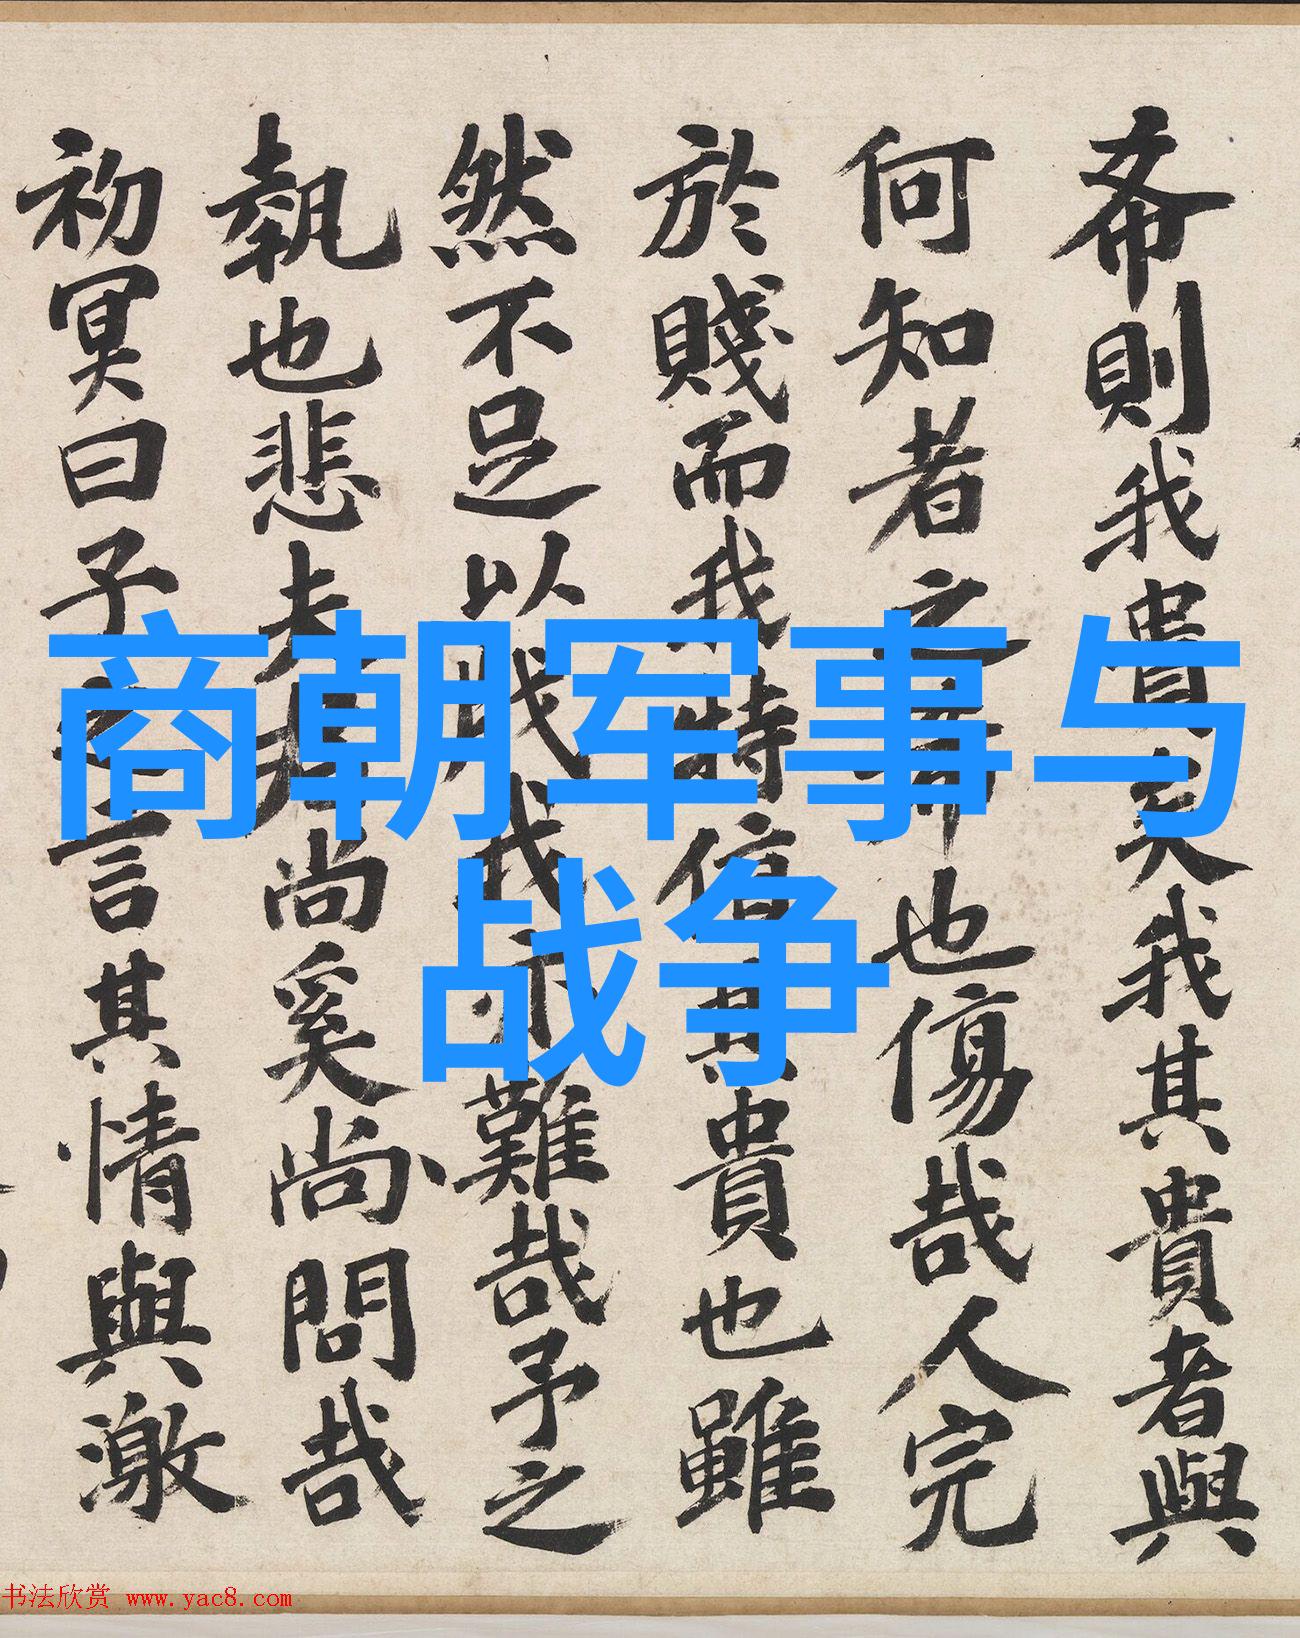 希則我貴矣我其貴者與
何知者之希也傷哉人完
於賤而我特其貴也雖
然不足以我不難哉予之
執也悲夫尚奚尚問哉
初冥曰子之言其情與激
商朝军事与
战争
书法欣赏 www.yac8.com